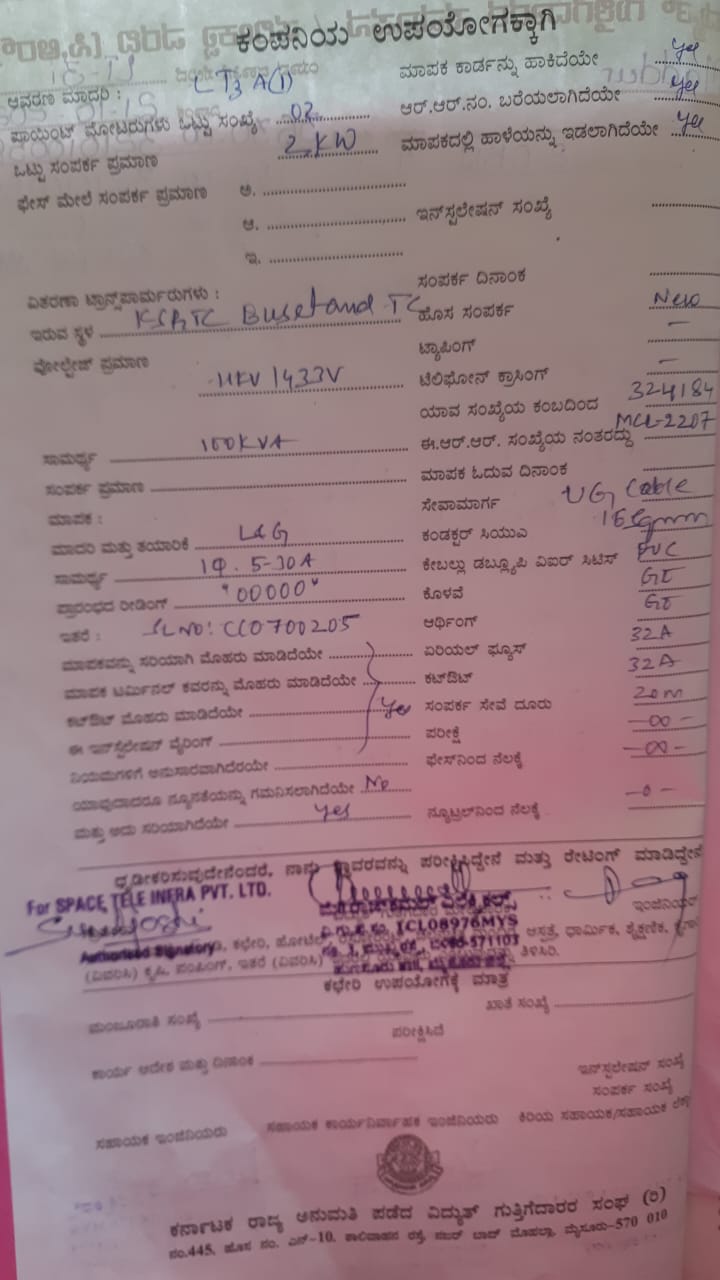 ಕಂಪನಿಯ ಉಪಯೋಗಕ್ಕಾಗಿ
ಆವರಣ ಮಾದರಿ : LT3 A(1)
ಮಾಪಕ ಕಾರ್ಡನ್ನು ಹಾಕಿದೆಯೇ Yes
ಪಾಯಿಂಟ್ ಮೋಟರುಗಳು ಒಟ್ಟು ಸಂಖ್ಯೆ 02
ಆರ್.ಆರ್.ನಂ. ಬರೆಯಲಾಗಿದೆಯೇ Yes
ಒಟ್ಟು ಸಂಪರ್ಕ ಪ್ರಮಾಣ 2 KW
ಮಾಪಕದಲ್ಲಿ ಹಾಳೆಯನ್ನು ಇಡಲಾಗಿದೆಯೇ Yes
ಫೇಸ್ ಮೇಲೆ ಸಂಪರ್ಕ ಪ್ರಮಾಣ ಅ.
ಆ.
ಇನ್‌ಸ್ಟಲೇಷನ್ ಸಂಖ್ಯೆ
ಇ.
ಸಂಪರ್ಕ ದಿನಾಂಕ
ವಿತರಣಾ ಟ್ರಾನ್ಸ್‌ಪಾರ್ಮರುಗಳು :
ಇರುವ ಸ್ಥಳ KSRTC Busstand TC
ಹೊಸ ಸಂಪರ್ಕ New
ಟ್ಯಾಪಿಂಗ್ –
ವೋಲ್ಟೇಜ್ ಪ್ರಮಾಣ 11KV/433V
ಟೆಲಿಫೋನ್ ಕ್ರಾಸಿಂಗ್ –
ಯಾವ ಸಂಖ್ಯೆಯ ಕಂಬದಿಂದ 324184
ಸಾಮರ್ಥ್ಯ 100KVA
ಈ.ಆರ್.ಆರ್. ಸಂಖ್ಯೆಯ ನಂತರದ್ದು MCL-2207
ಸಂಪರ್ಕ ಪ್ರಮಾಣ
ಮಾಪಕ ಓದುವ ದಿನಾಂಕ
ಮಾಪಕ :
ಸೇವಾಮಾರ್ಗ UG Cable
ಮಾದರಿ ಮತ್ತು ತಯಾರಿಕೆ L&G
ಕಂಡಕ್ಟರ್ ಸಿಯುಎ 16 Sqmm
ಸಾಮರ್ಥ್ಯ 1Φ. 5-30A
ಕೇಬಲ್ಲು ಡಬ್ಲ್ಯೂಪಿ ವಿಐರ್ ಸಿಟಿಸ್ PVC
ಪ್ರಾರಂಭದ ರೀಡಿಂಗ್ "00000"
ಕೊಳವೆ GI
ಇತರೆ : SL NO: CC0700205
ಆರ್ಥಿಂಗ್ GI
ಮಾಪಕವನ್ನು ಸರಿಯಾಗಿ ಮೊಹರು ಮಾಡಿದೆಯೇ
ಏರಿಯಲ್ ಫ್ಯೂಸ್ 32A
ಮಾಪಕ ಟರ್ಮಿನಲ್ ಕವರನ್ನು ಮೊಹರು ಮಾಡಿದೆಯೇ
ಕಟ್‌ಔಟ್ 32A
ಕಟ್‌ಔಟ್ ಮೊಹರು ಮಾಡಿದೆಯೇ Yes
ಸಂಪರ್ಕ ಸೇವೆ ದೂರು 20m
ಈ ಇನ್‌ಸ್ಟಲೇಷನ್ ವೈರಿಂಗ್
ಪರೀಕ್ಷೆ -00-
ನಿಯಮಗಳಿಗೆ ಅನುಸಾರವಾಗಿದೆರೆಯೇ
ಫೇಸ್‌ನಿಂದ ನೆಲಕ್ಕೆ -00-
ಯಾವುದಾದರೂ ನ್ಯೂನತೆಯನ್ನು ಗಮನಿಸಲಾಗಿದೆಯೇ No
ಮತ್ತು ಅದು ಸರಿಯಾಗಿದೆಯೇ Yes
ನ್ಯೂಟ್ರಲ್‌ನಿಂದ ನೆಲಕ್ಕೆ -0-
ಧೃಡೀಕರಿಸುವುದೇನೆಂದರೆ, ನಾನು ಸ್ಥಾವರವನ್ನು ಪರೀಕ್ಷಿಸಿದ್ದೇನೆ ಮತ್ತು ರೇಟಿಂಗ್ ಮಾಡಿದ್ದೇನೆ
For SPACE TELE INFRA PVT. LTD.
ಇಂಜಿನಿಯರ್
1CL08976MYS
Authorised Signatory
ಕಛೇರಿ, ಹೋಟೆಲ್
ಆಸ್ಪತ್ರೆ, ಧಾರ್ಮಿಕ, ಶೈಕ್ಷಣಿಕ,
571103
(ವಿವರಿಸಿ) ಕೃಷಿ, ಪಂಪಿಂಗ್, ಇತರೆ (ವಿವರಿಸಿ)
ತಿಳಿಸಿರಿ.
ಕಛೇರಿ ಉಪಯೋಗಕ್ಕೆ ಮಾತ್ರ
ಮಂಜೂರಾತಿ ಸಂಖ್ಯೆ
ಖಾತೆ ಸಂಖ್ಯೆ
ಪರೀಕ್ಷಿಸಿದೆ
ಕಾರ್ಯ ಆದೇಶ ಮತ್ತು ದಿನಾಂಕ
ಇನ್‌ಸ್ಟಲೇಷನ್ ಸಂಖ್ಯೆ
ಸಂಪರ್ಕ ಸಂಖ್ಯೆ
ಸಹಾಯಕ ಇಂಜಿನಿಯರು ಸಹಾಯಕ ಕಾರ್ಯನಿರ್ವಾಹಕ ಇಂಜಿನಿಯರು ಕಿರಿಯ ಸಹಾಯಕ/ಸಹಾಯಕ
ಕರ್ನಾಟಕ ರಾಜ್ಯ ಅನುಮತಿ ಪಡೆದ ವಿದ್ಯುತ್ ಗುತ್ತಿಗೆದಾರರ ಸಂಘ (ರಿ)
ನಂ.445, ಹೊಸ ನಂ. ಎನ್-10, ಶಾಲಿವಾಹನ ರಸ್ತೆ, ನಜರ್ ಬಾದ್ ಮೊಹಲ್ಲಾ, ಮೈಸೂರು-570 010